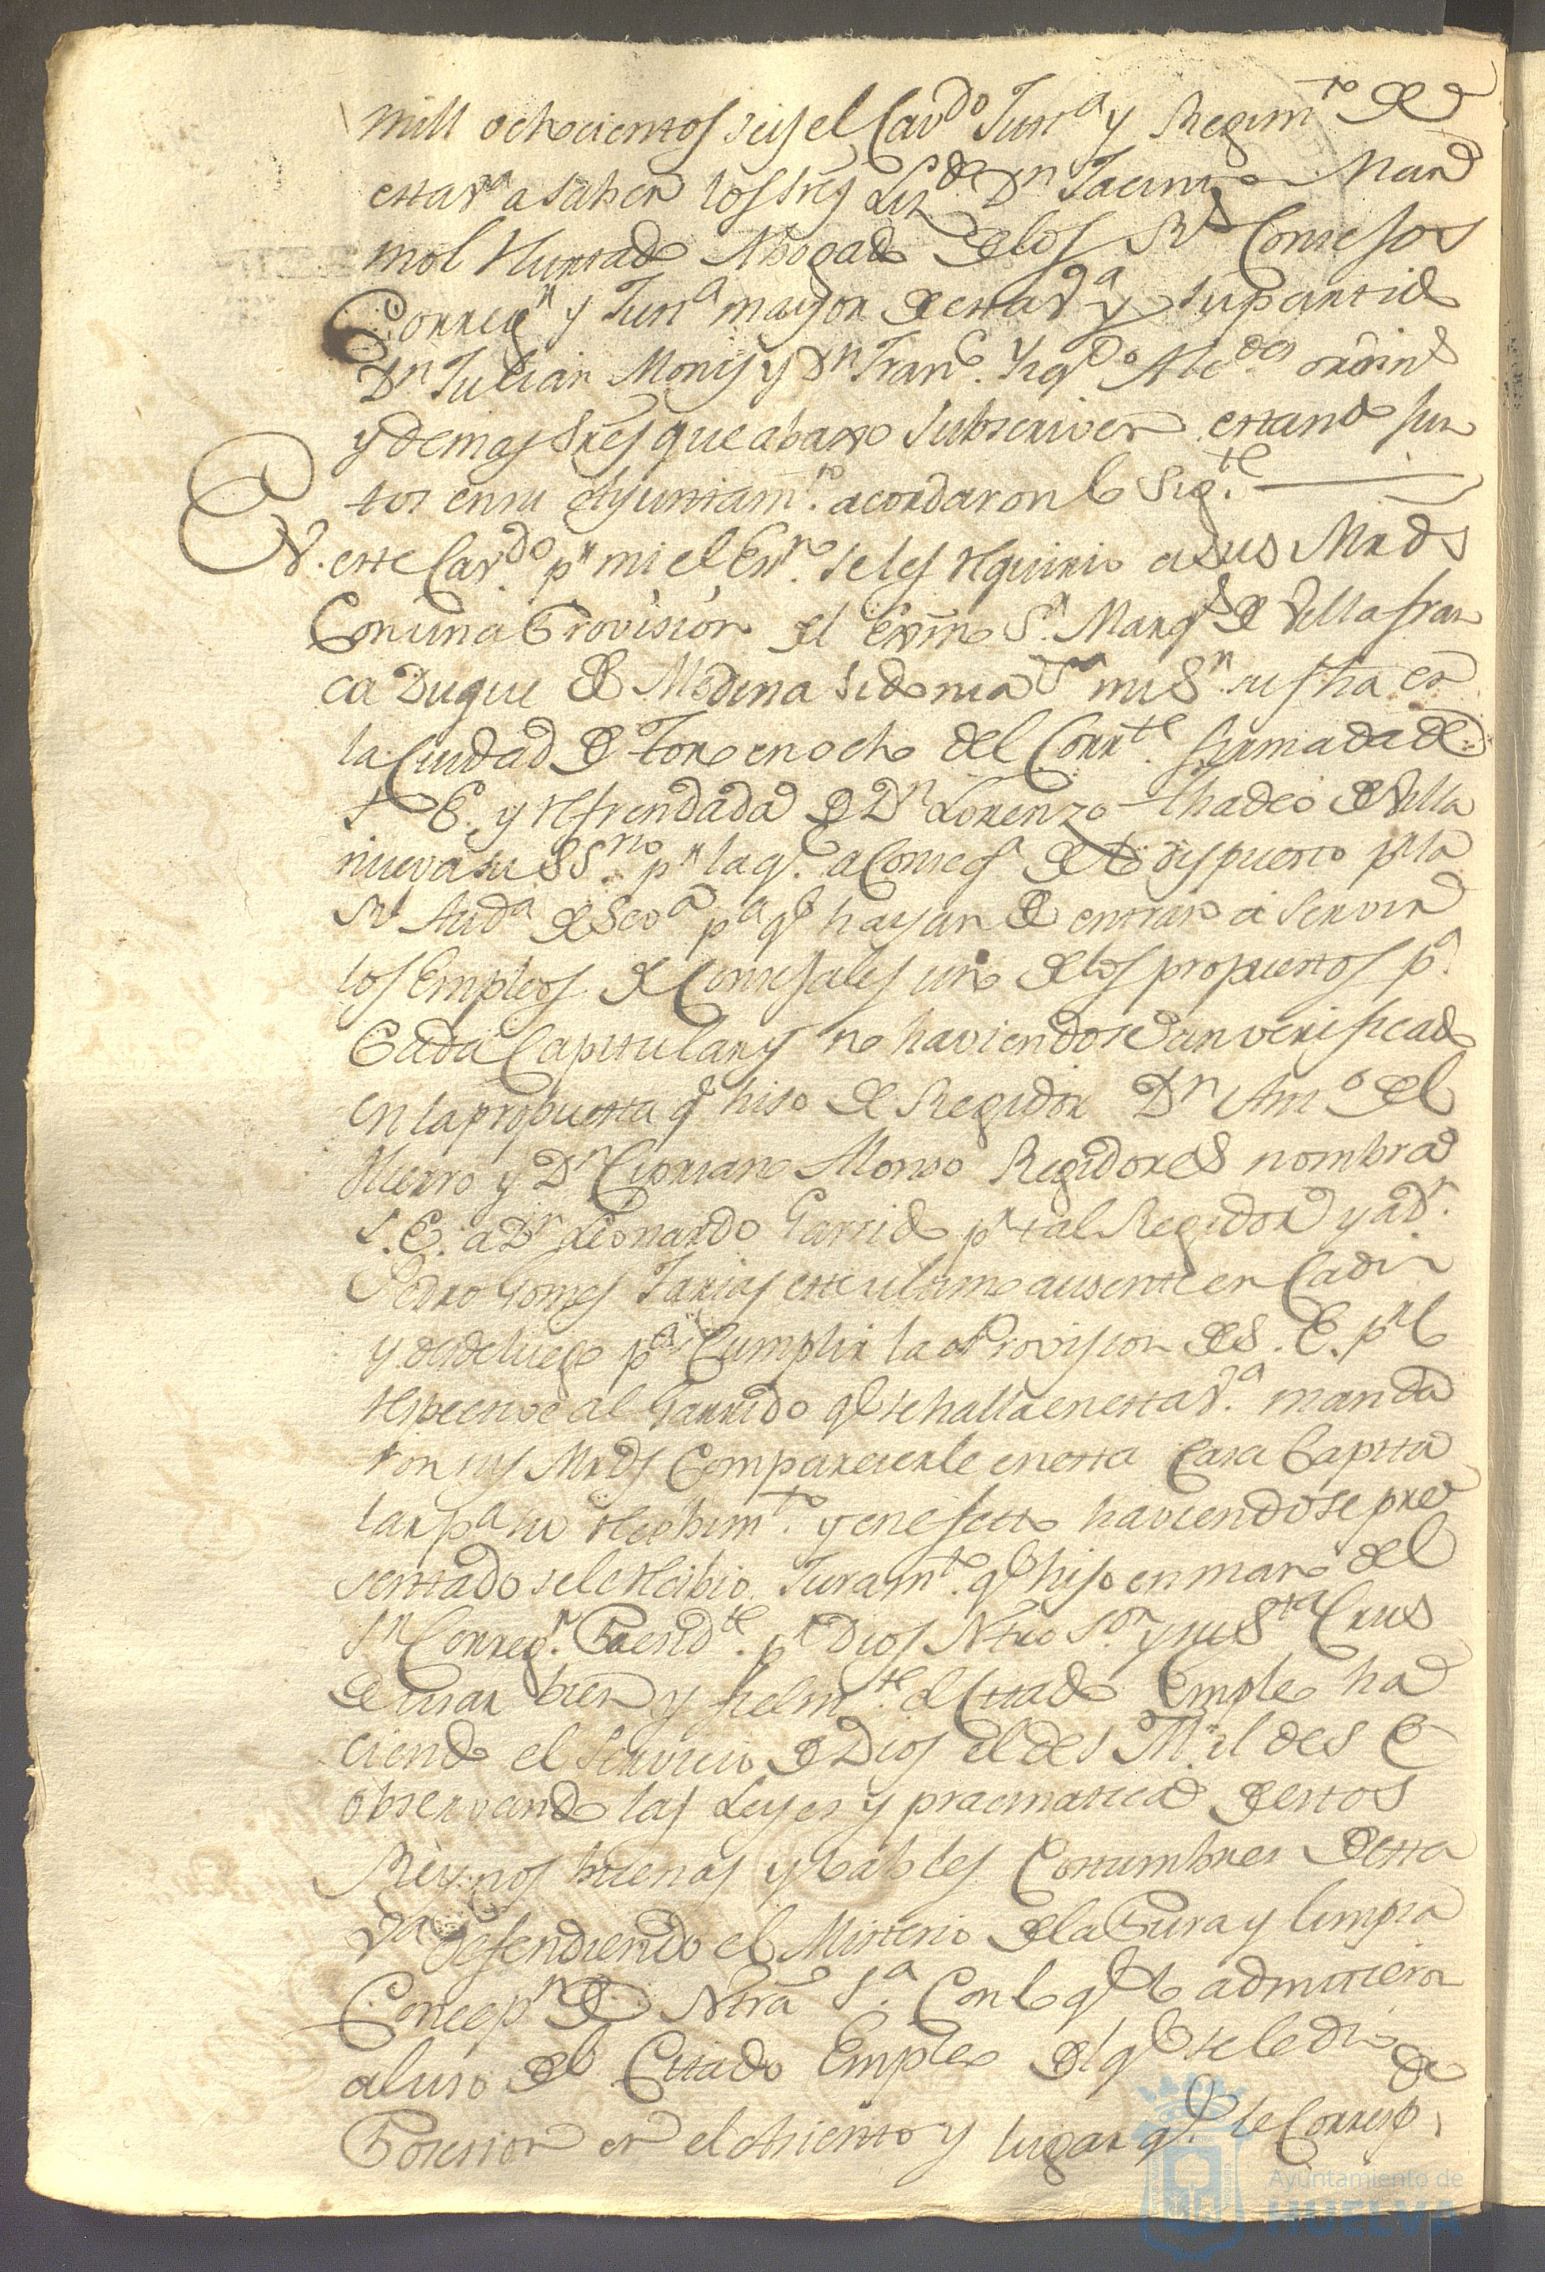 mill ochocientos seis el Cavdo Justa y Regimto de
esta va a saber los sres Lizdo Dn Jacinto Mar
mol Hurtado Abogado de los Rs Consejos
Corregr y Justa mayor de esta va y su partido
Dn Julian Monis y Dn Franco Yzqdo Alcdes ordins
y demas Sres que abaxo subscriven estando jun
tos en su Ayuntamto. acordaron lo sigte.
En este Cavdo. pr mi el Esno. se les requirio a sus Mrds
Con una Provision del Exmo Sr. Marqs de Villa fran
ca Duque de Medina Sidonia mi Sr. su fha en
la Ciudad de Toro en ocho del Corrte. firmada de
S E. y refrendada de Dn Lorenzo thadeo de Villa
nueva su SSrio. pr la q. a Conseqa de lo dispuesto pr la
Rl Auda de Seva pa qe hayan de entrar a servir
los Empleos de Consejales uno de los propuestos pa.
Cada Capitular y no haviendose aun verificado
en la propuesta qe hiso de Regidor Dn Anto del
Hierro y Dn Cipriano Alonso Regidores nombra
S. E. a Dn Leonardo Garrido pr tal Regidor y a Dn.
Pedro Gomes Farias este ultimo ausente en Cadiz
y desde luego pa Cumplir la Provision de S. E. pr lo
respective al Garrido qe se halla en esta va. manda
ron sus Mrds Comparecerle en esta Casa Capitu
lar pa su recibimto. y en efecto haviendose pre
sentado se le recibio Juramto. qe hiso en mano del
Sr Corregr. Presidte. pr Dios Ntro Sor. y su Sta Crus
de usar bien y fielmte. el Citado Empleo ha
ciendo el servicio de Dios el de S M. el de S E
observando las Leyes y pracmatica de estos
Reynos buenas y loables Costumbres de esta
va defendiendo el Misterio de la Pura y limpia
Concepn de Ntra Sa. Con lo qe lo admitieron
al uso del Citado Empleo del qe se le dio
Posesion en el Asiento y lugar q. le Corresp.
de
Ayuntamiento de
HUELVA